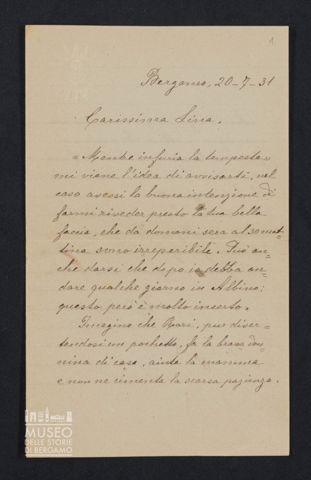 1
Bergamo, 20-7-31
Carissima Lina.
«Mentre infuria la tempesta»
mi viene l'idea di avvisarti, nel
caso avessi la buona intenzione di
farmi riveder presto la tua bella
faccia, che da domani sera al 30 mat=
tina sono irreperibile. Può an=
che darsi che dopo io debba an=
dare qualche giorno in Albino;
questo però è molto incerto.
Imagino che Bari, pur diver=
tendosi un pochetto, fa la brava don=
nina di casa, aiuta la mamma
e non ne cimenta la scarsa pazienza.
MUSEO
DELLE STORIE
DI BERGAMO